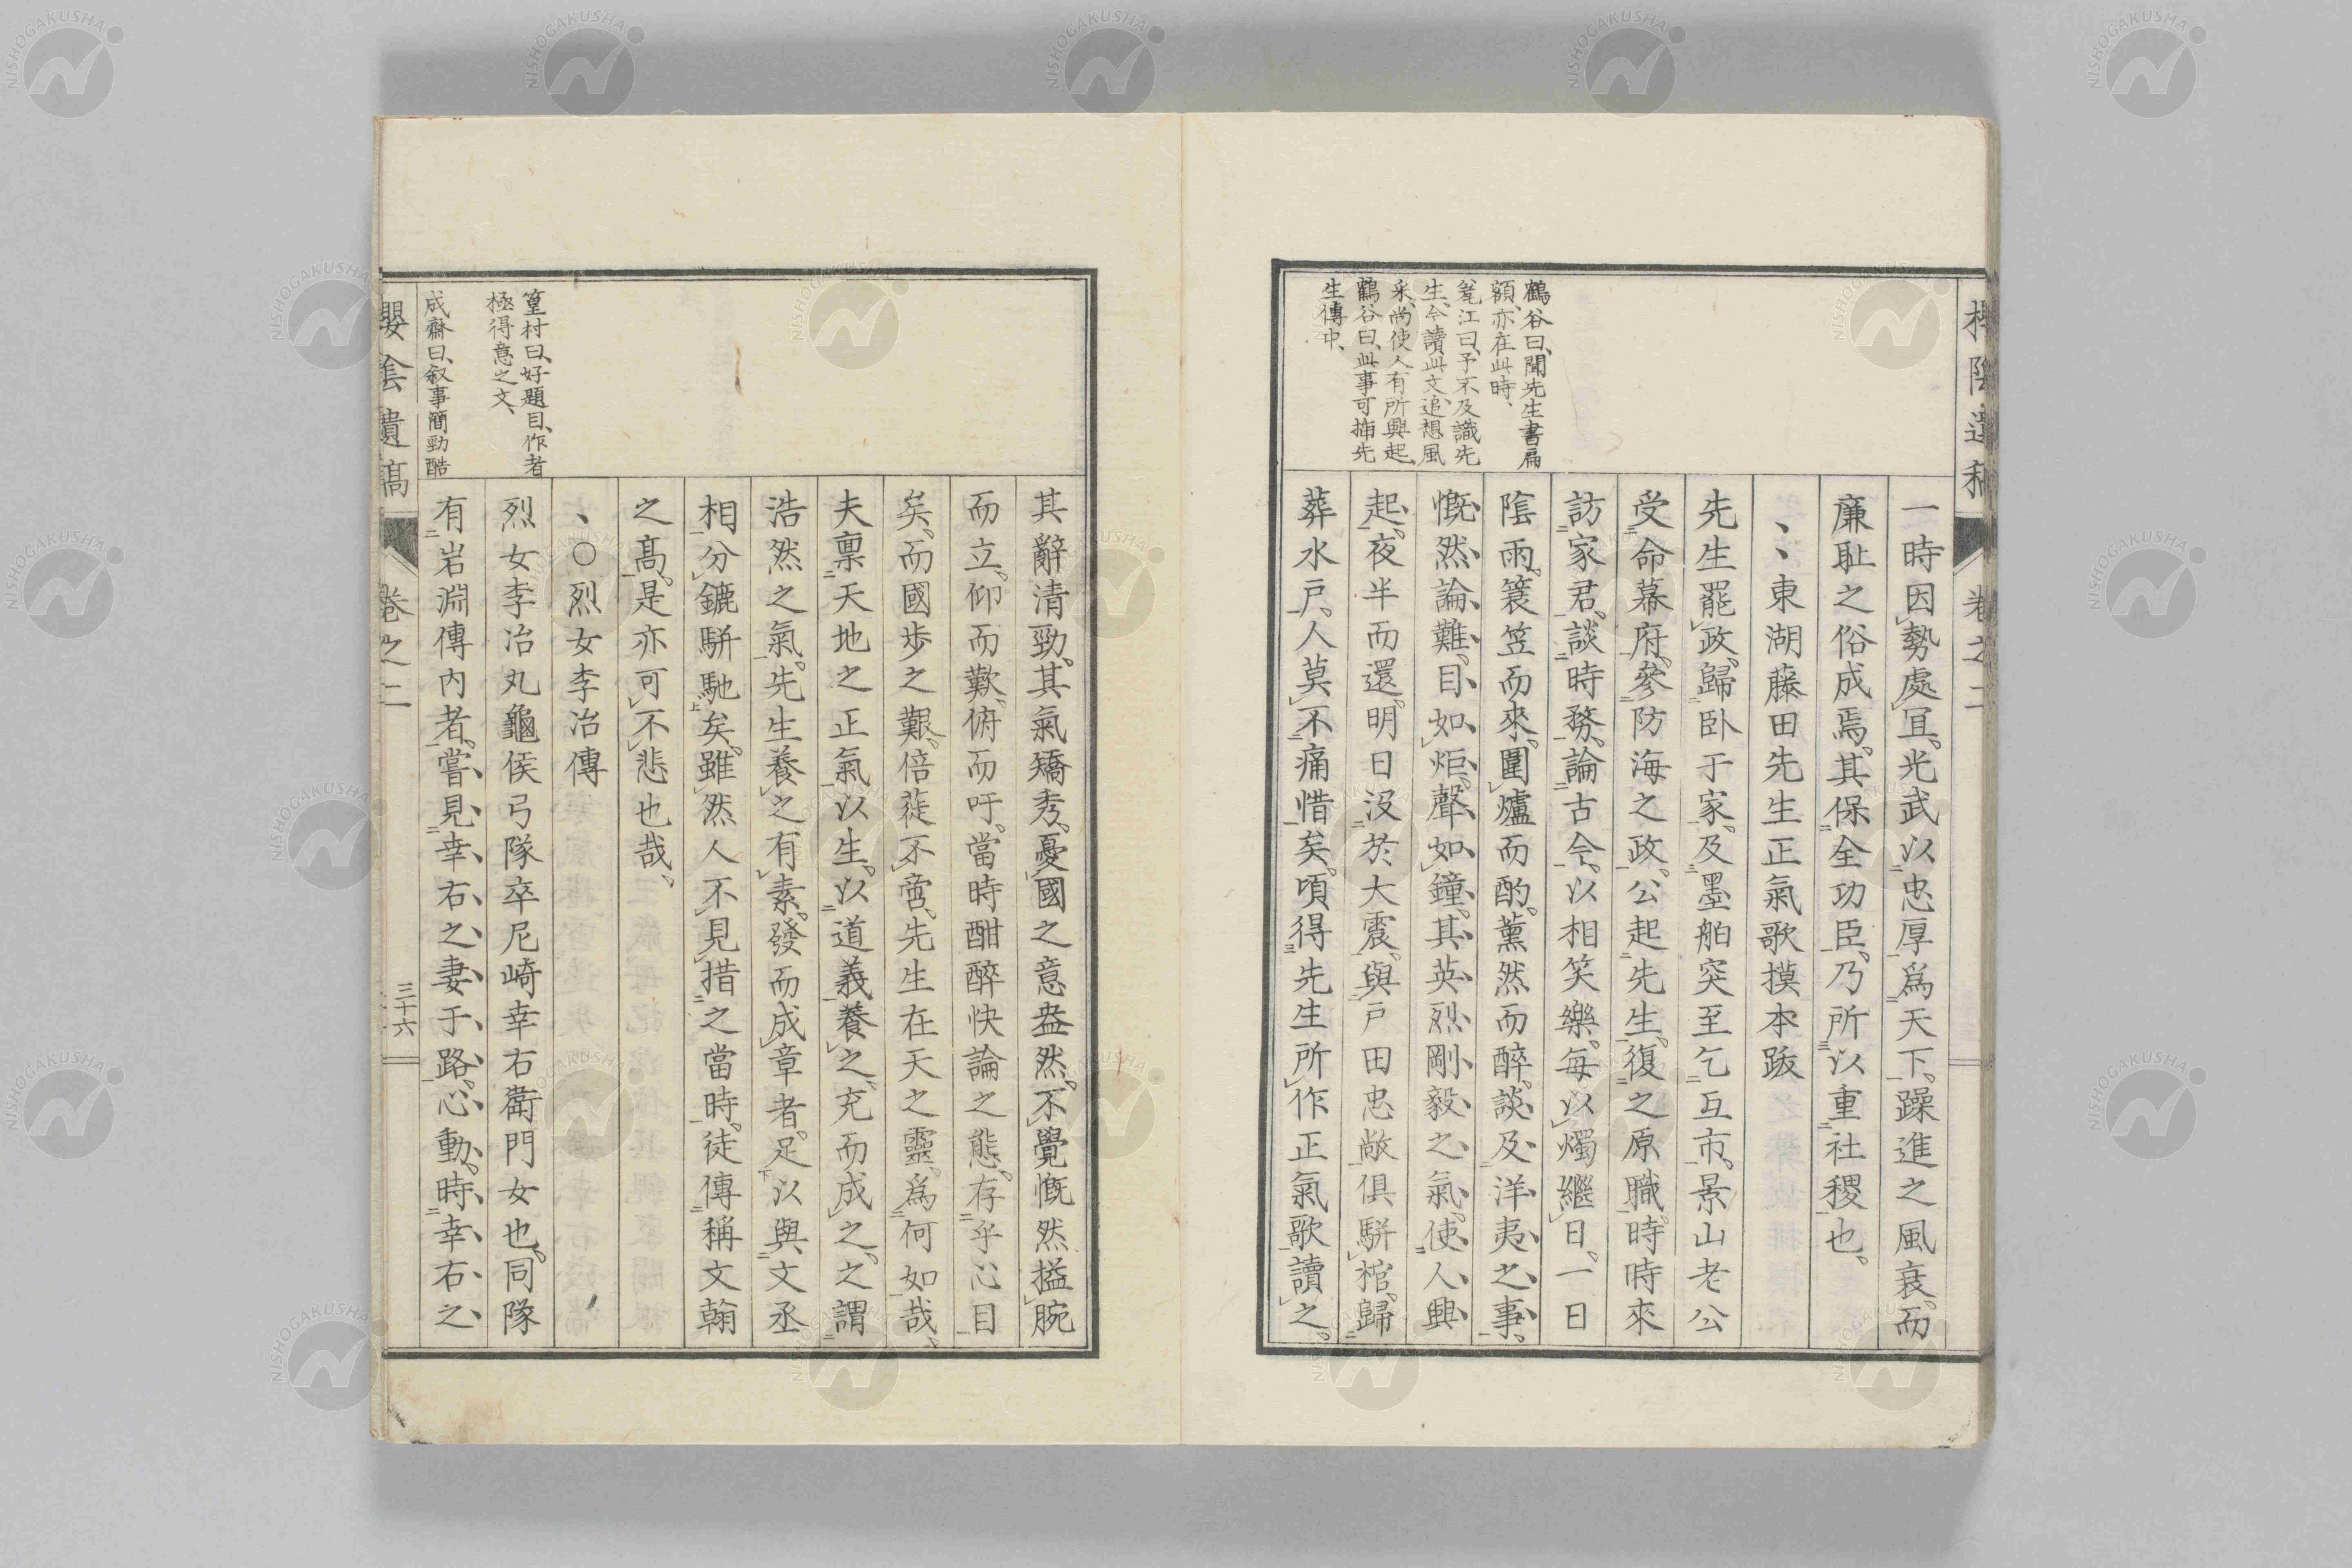 一時因勢處宜。光武以忠厚爲天下。躁進之風衰。而
廉耻之俗成焉。其保全功臣、乃所以重社稷也。
東湖藤田先生正氣歌摸本跋
先生罷政、歸卧于家、及墨舶突至乞互市、景山老公
受命幕府、參防海之政。公起先生、復之原職。時時來
訪家君、談時務、論古今、以相笑樂。每以燭繼日。一日
陰雨、簑笠而來、圍爐而酌。薰然而醉。談及洋夷之事、
慨然論難、目如炬、聲如鐘、其英烈剛毅之氣、使人興
起。夜半而還。明日沒於大震、與戸田忠敞俱駢棺。歸
葬水戸。人莫不痛惜矣。頃得先生所作正氣歌讀之。
鶴谷曰、聞先生書扁
額、亦在此時、
毟江曰、予不及識先
生、今讀此文、追想風
采、尚使人有所興起、
鶴谷曰、此事可揷先
生傳中、
卷之二
其辭清勁、其氣矯秀、憂國之意盎然。不覺慨然搤腕
而立。仰而歎、俯而吁。當時酣醉快論之態、存乎心目
矣。而國步之艱、倍蓰不啻、先生在天之靈、爲何如哉、
夫禀天地之正氣以生。以道義養之、充而成之、之謂
浩然之氣。先生養之有素。發而成章者。足以與文丞
相分鑣駢馳矣。雖然人不見措之當時。徒傳稱文翰
之高。是亦可不悲也哉、
○烈女李冶傳
烈女李冶丸龜侯弓隊卒尼崎幸右衛門女也。同隊
有岩淵傳内者。嘗見幸右之妻于路、心動。時幸右之
篁村曰、好題目、作者
極得意之文、
成齋曰、叙事簡勁酷
櫻陰遺稿
卷之二
三十六
NISHOGAKUSHA